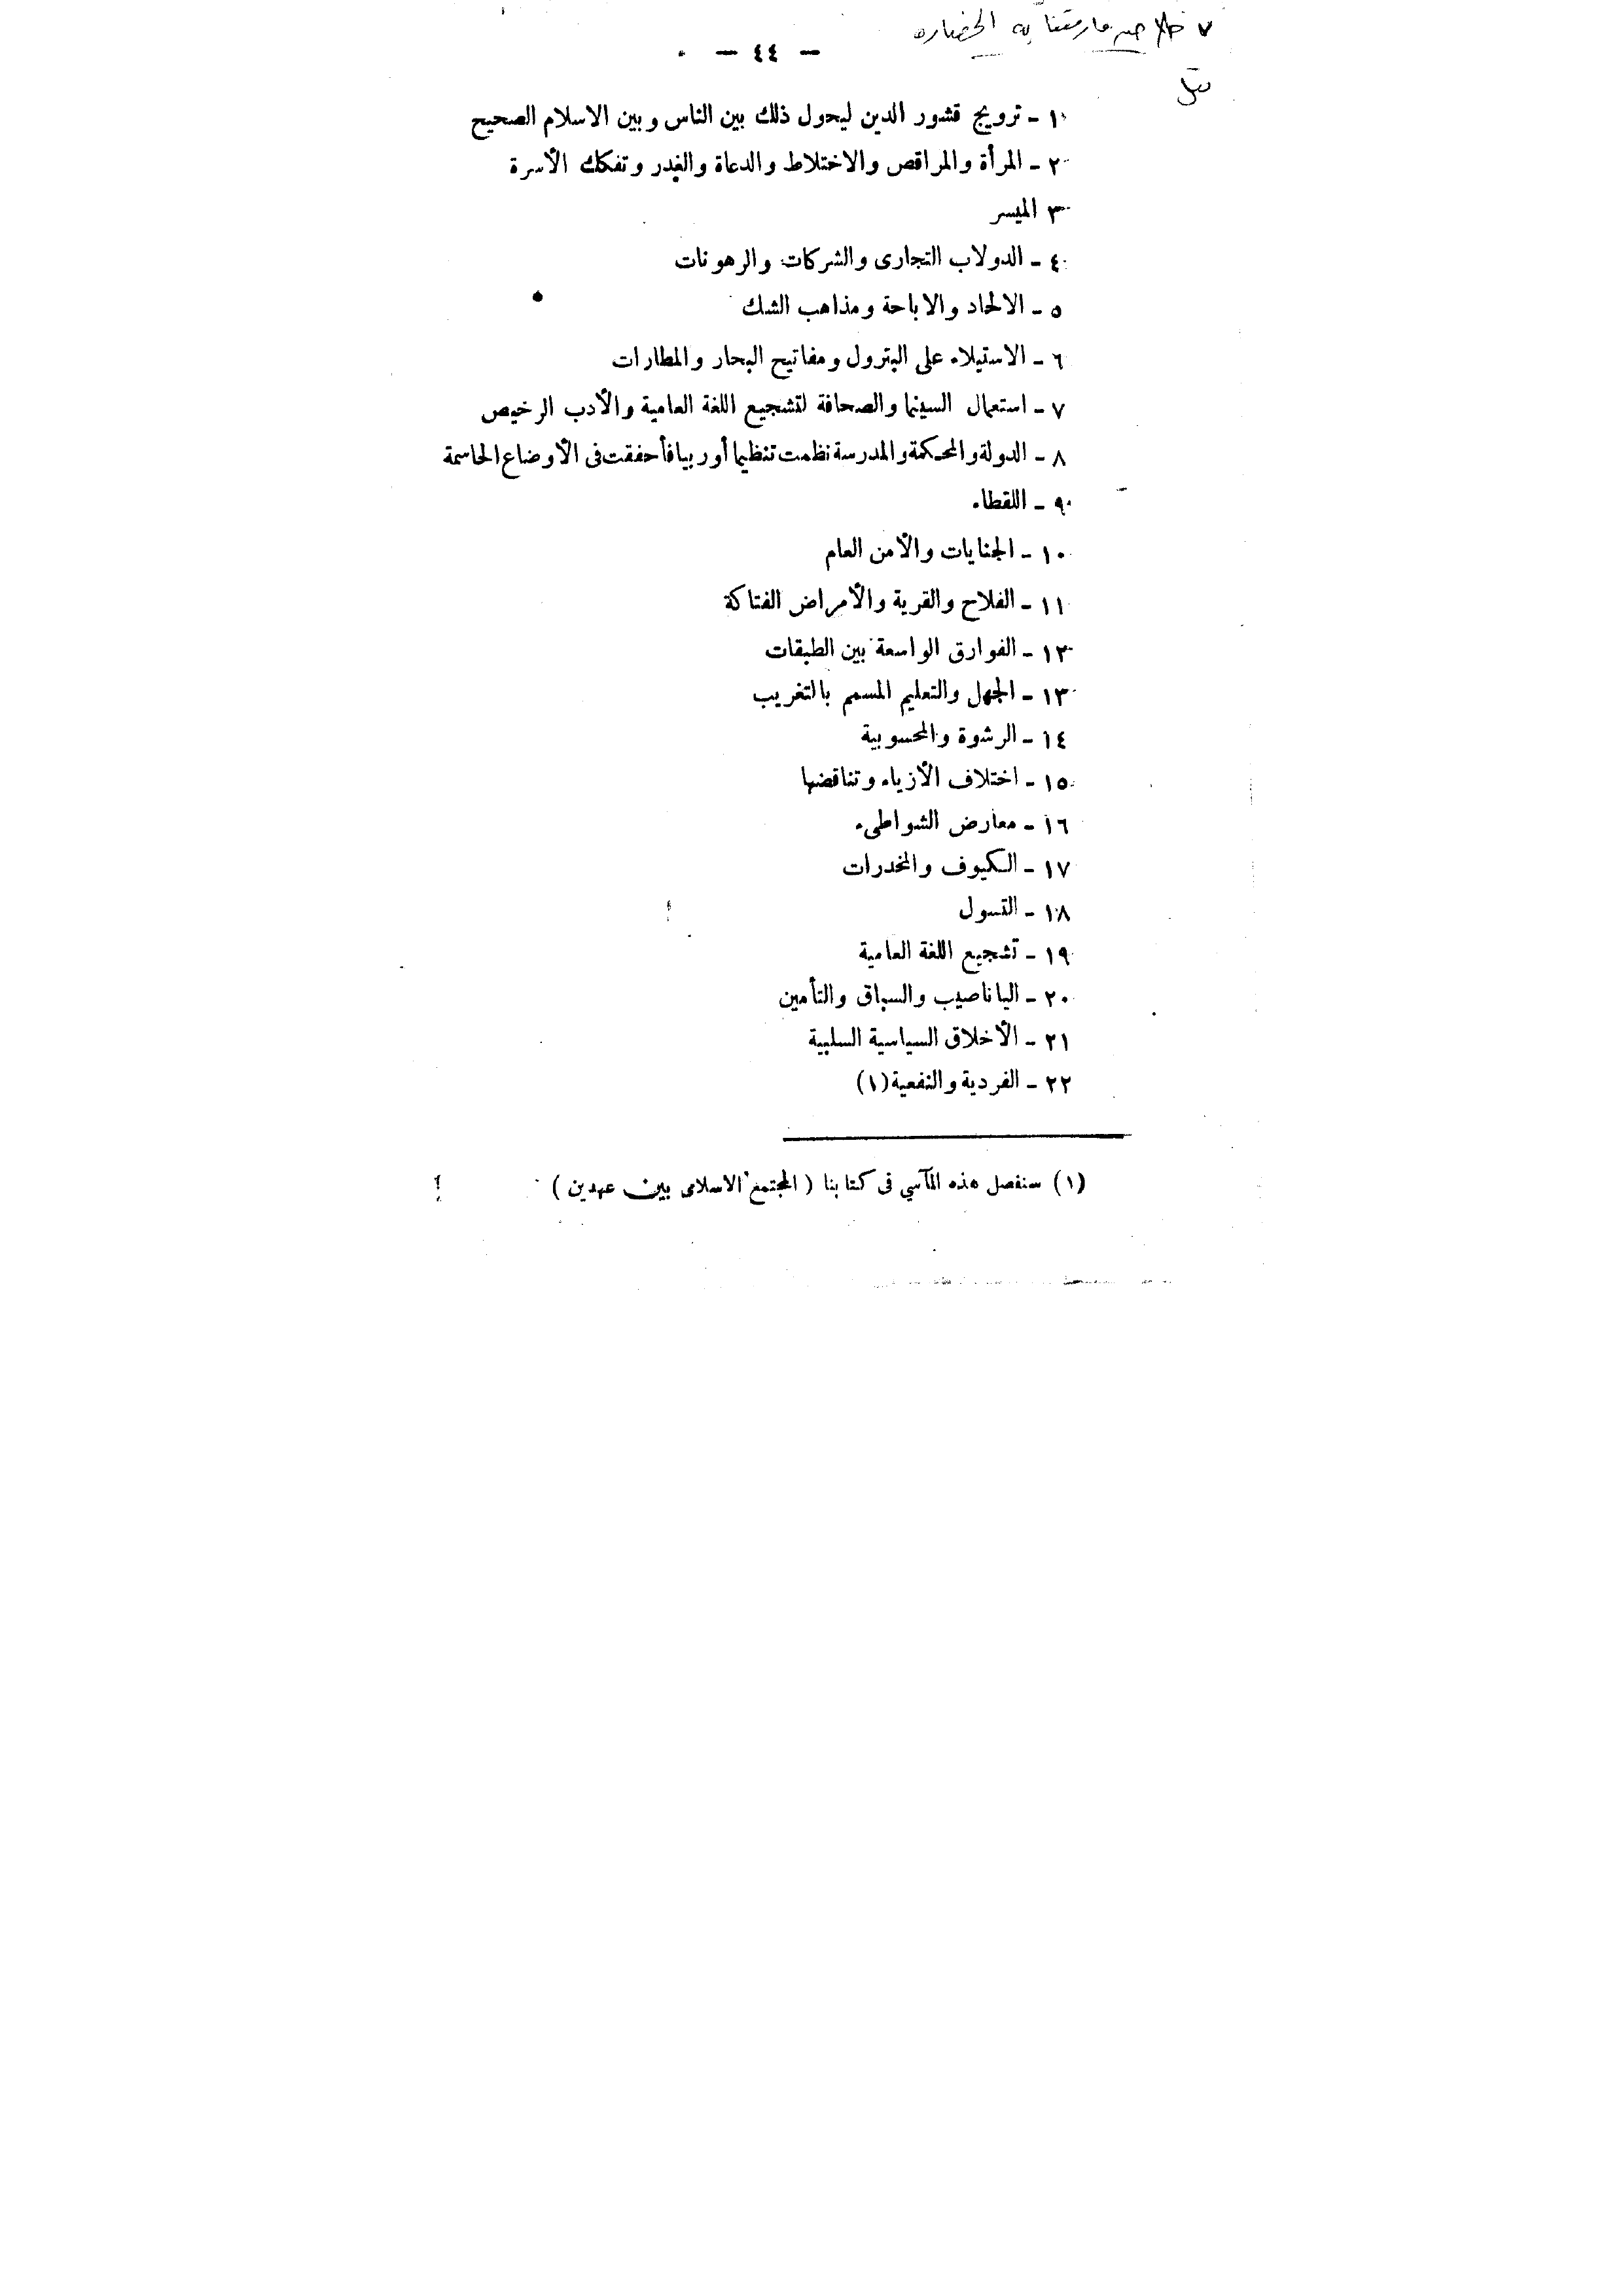 الحضاره
— ٤٤ —
١ - ترويج قشور الدين ليحول ذلك بين الناس وبين الاسلام الصحيح
٢ - المرأة والمراقص والاختلاط والدعاة والغدر وتفكك الأسرة
٣ الميسر
٤ - الدولاب التجارى والشركات والرهونات
٥ - الالحاد والاباحة ومذاهب الشك
٦ - الاستيلاء على البترول ومفاتيح البحار والمطارات
٧ - استعمال السينما والصحافة لتشجيع اللغة العامية والأدب الرخيص
٨ - الدولة والمحكمة والمدرسة نظمت تنظيما أوربيا فأخفقت فى الأوضاع الحاسمة
٩ - اللقطاء
١٠ - الجنايات والأمن العام
١١ - الفلاح والقرية والأمراض الفتاكة
١٢ - الفوارق الواسعة بين الطبقات
١٣ - الجهل والتعليم المسمم بالتغريب
١٤ - الرشوة والمحسوبية
١٥ - اختلاف الأزياء وتناقضها
١٦ - معارض الشواطىء
١٧ - الكيوف والمخدرات
١٨ - التسول
١٩ - تشجيع اللغة العامية
٢٠ - اليا ناصيب والسباق والتأمين
٢١ - الأخلاق السياسية السلبية
٢٢ - الفردية والنفعية (١)
(١) سنفصل هذه المآسي فى كتابنا ( المجتمع الاسلامى بين عهدين )